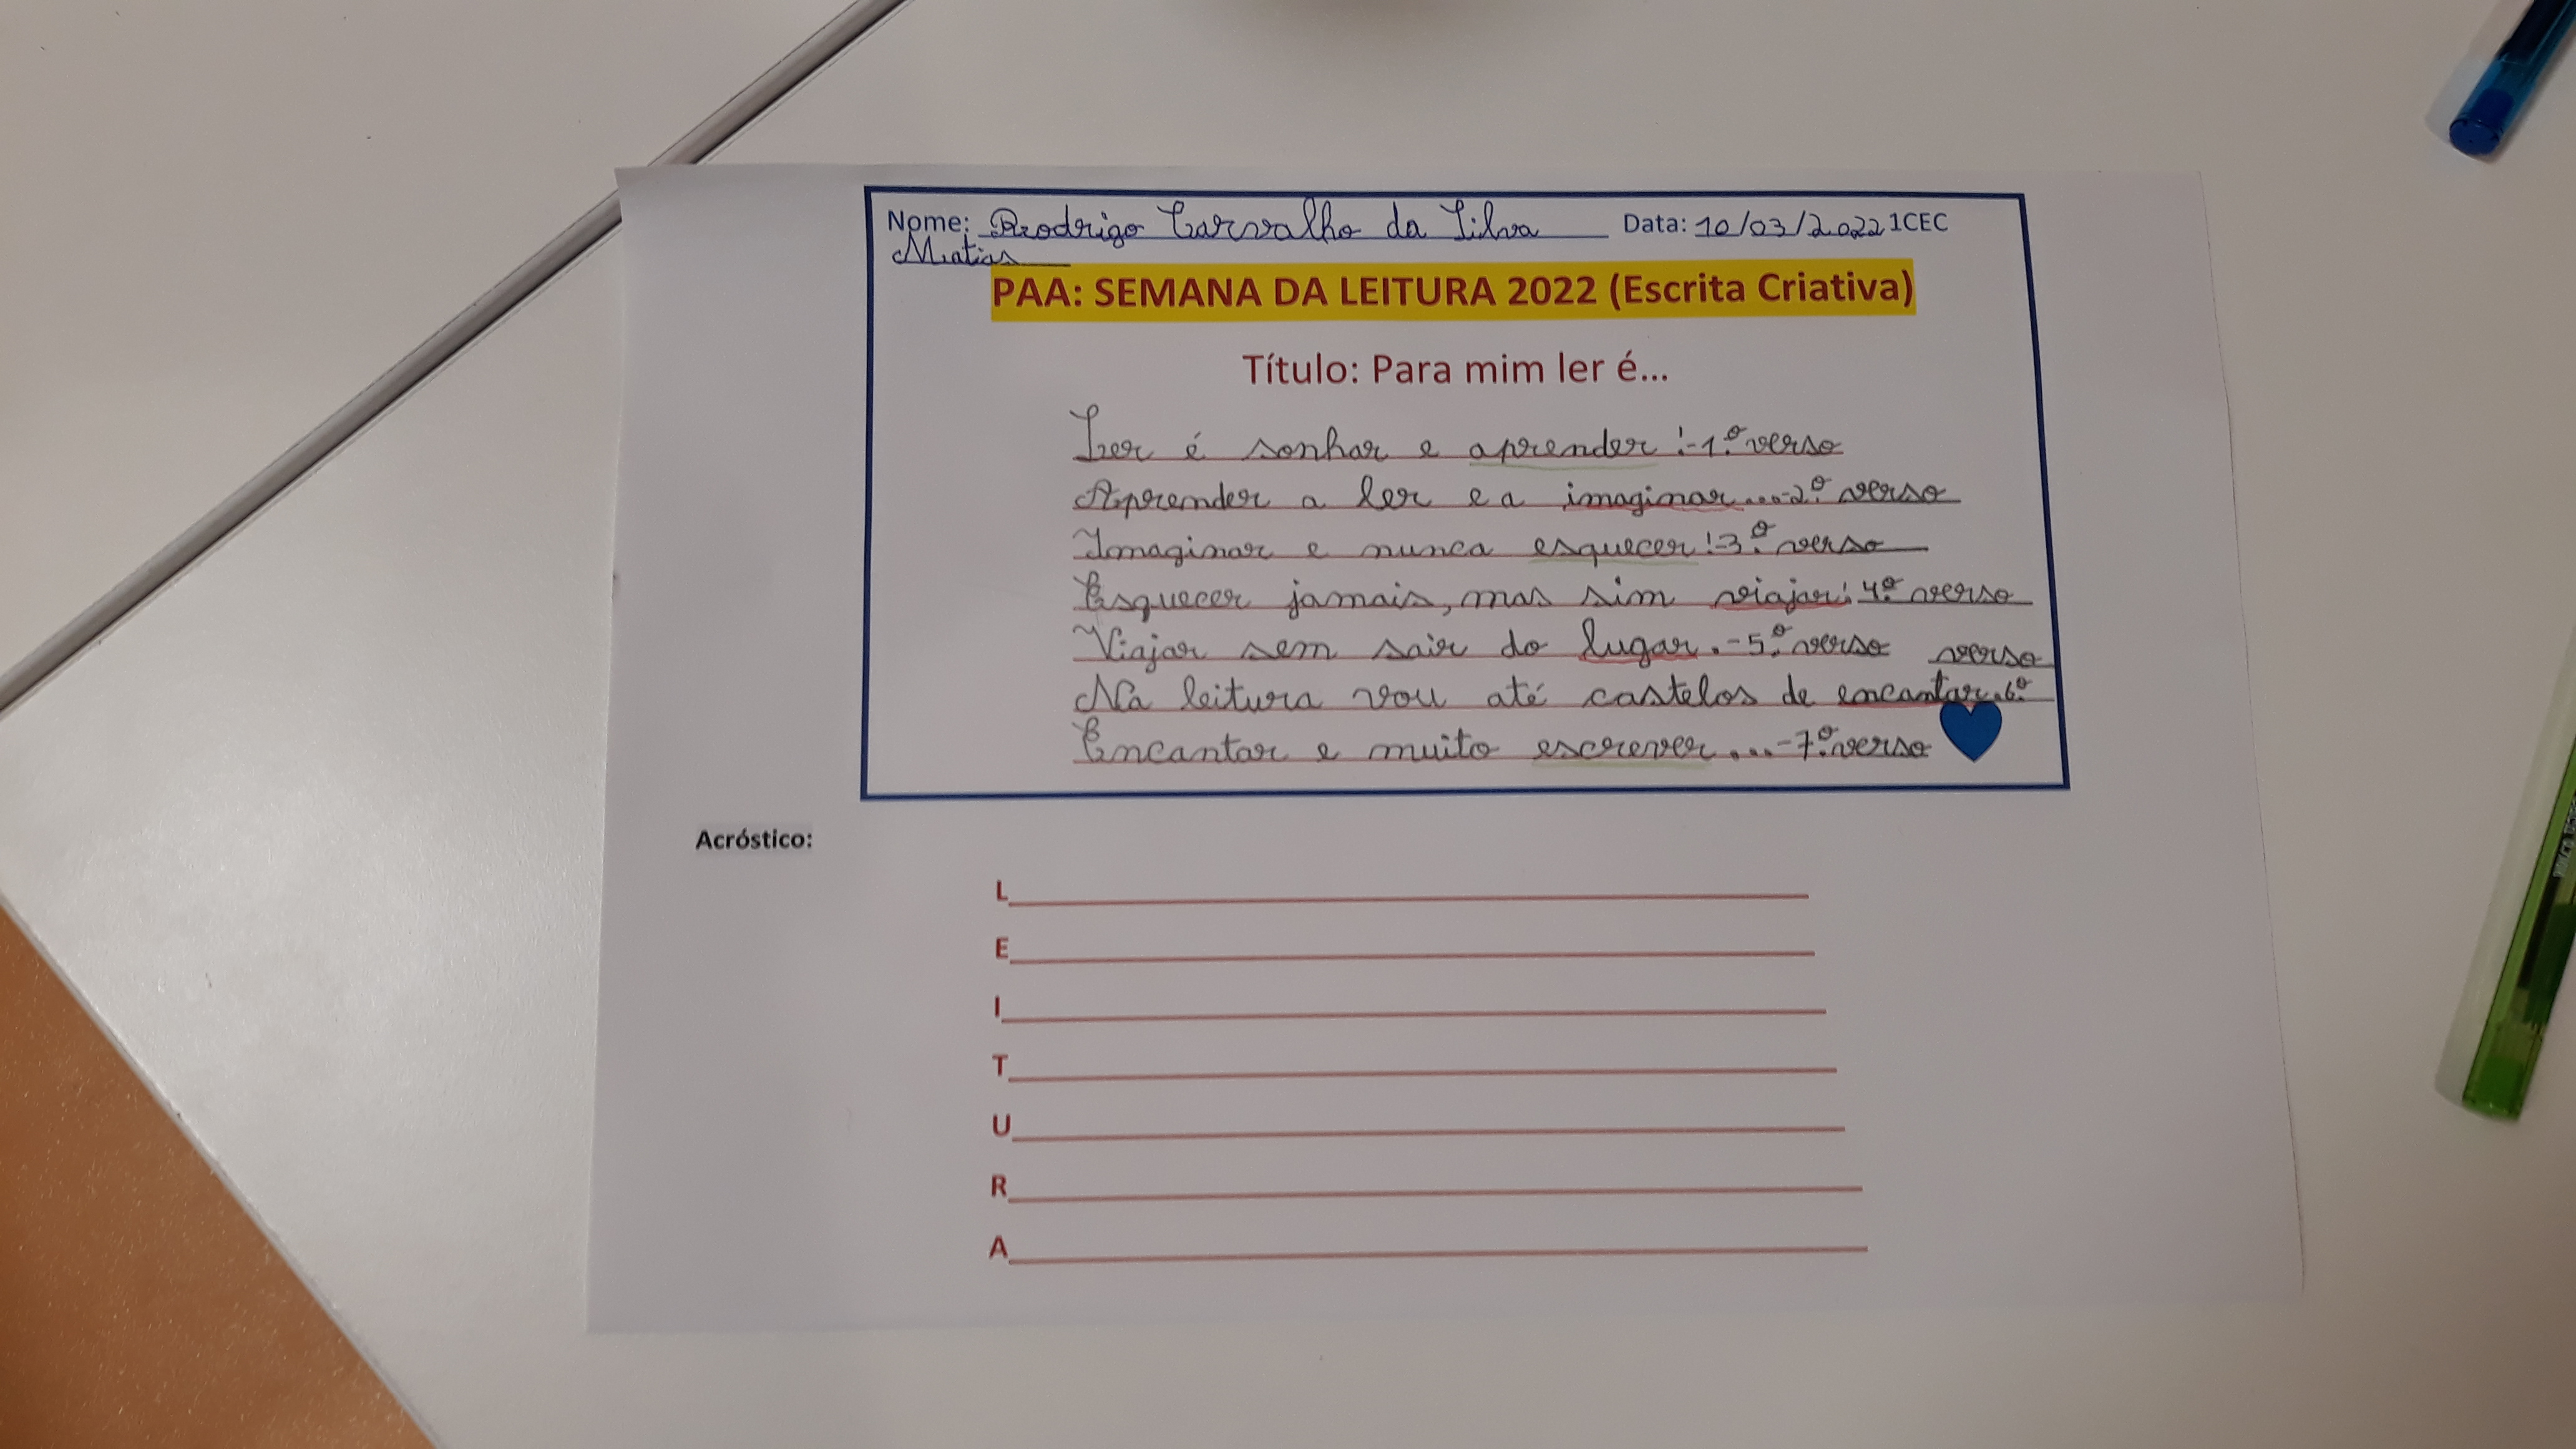 Nome: Rodrigo Carvalho da Silva Data: 10/03/2022 1CEC
Matias
PAA: SEMANA DA LEITURA 2022 (Escrita Criativa)
Título: Para mim ler é...
Ler é sonhar e aprender!-1.º verso
Aprender a ler e a imaginar...-2.º verso
Imaginar e nunca esquecer!-3.º verso
Esquecer jamais, mas sim viajar! 4.º verso
Viajar sem sair do lugar.-5.º verso verso
Na leitura vou até castelos de encantar.6.º
Encantar e muito escrever...-7.º verso
Acróstico:
L
E
I
T
U
R
A